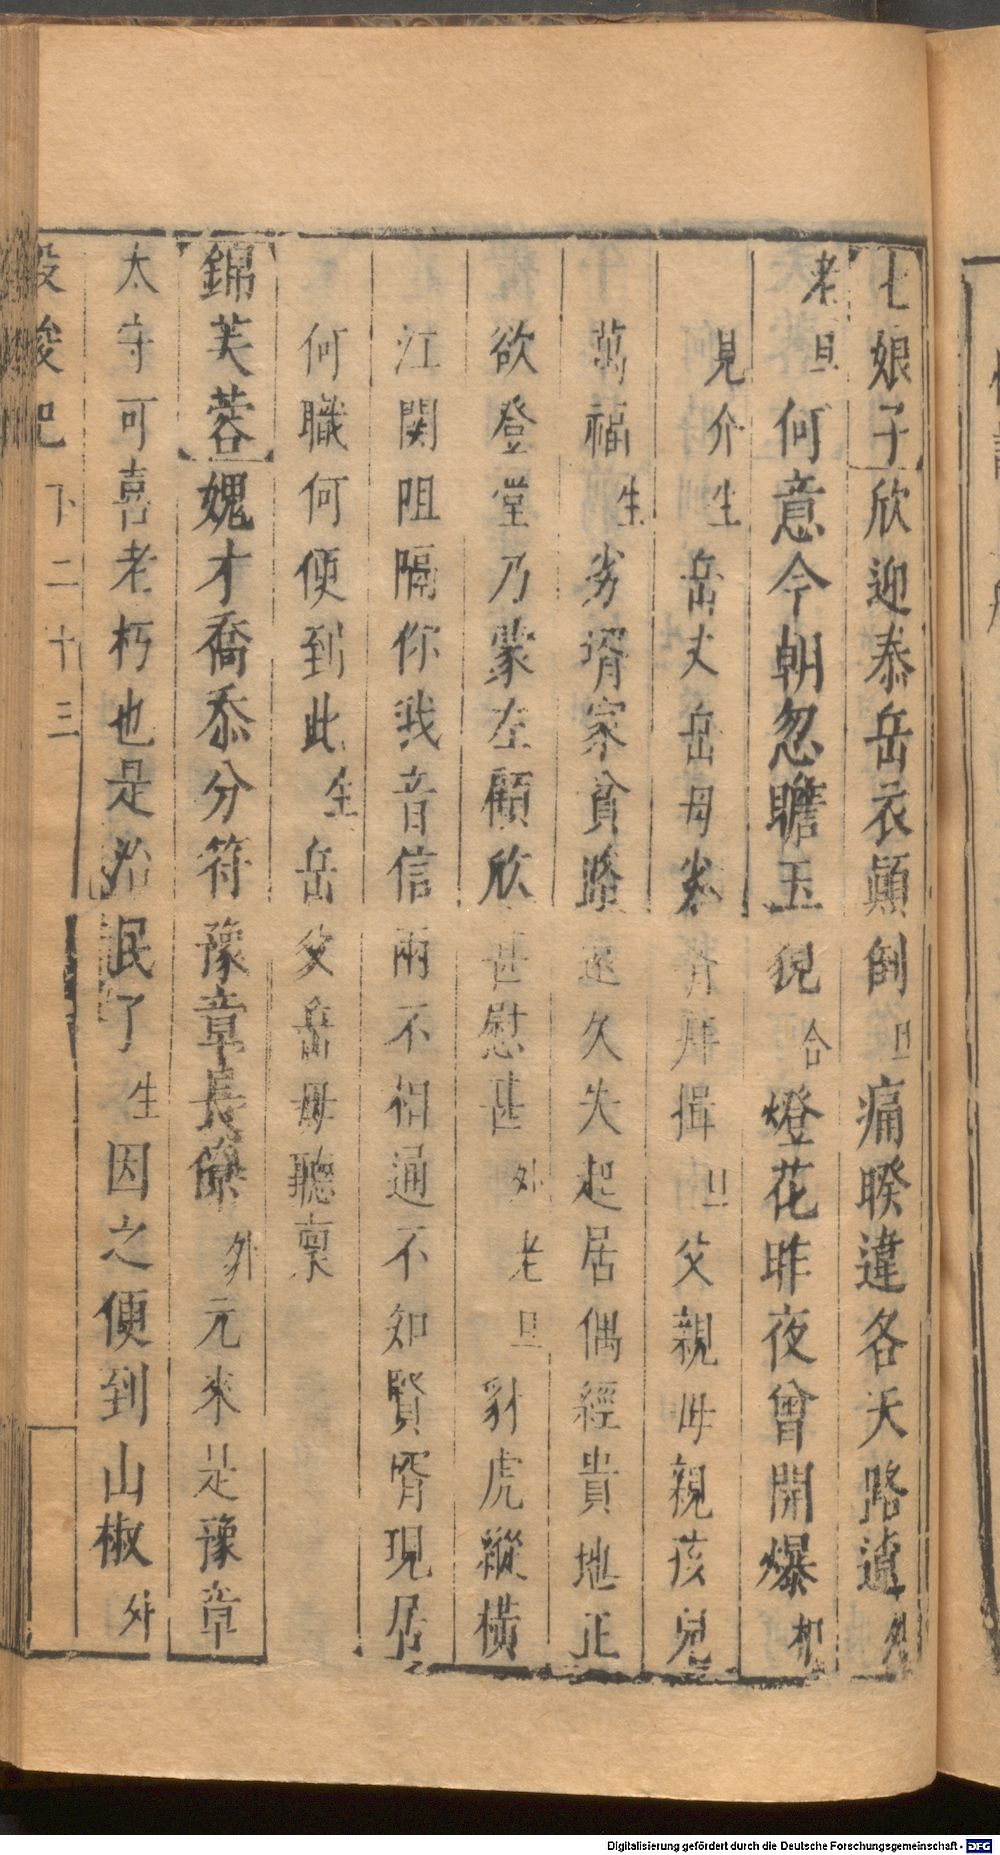 七娘子欣迎泰岳衣顛倒旦痛睽違各天路遠外
老旦何意今朝忽瞻玉貌合燈花昨夜曾開爆相
見介生岳丈岳母劣壻拜揖旦父親母親孩兒
萬福生劣壻家貧路遠久失起居偶經貴地正
欲登堂乃蒙左顧欣甚慰甚外老旦豺虎縱橫
江関阻隔你我音信兩不相通不知賢壻現居
何職何便到此生岳父岳母聽禀
錦芙蓉媿才喬忝分符豫章長僚外元來是豫章
太守可喜老朽也是治民了生因之便到山椒外
投梭記 下二十三
Digitalisierung gefördert durch die Deutsche Forschungsgemeinschaft - DFG